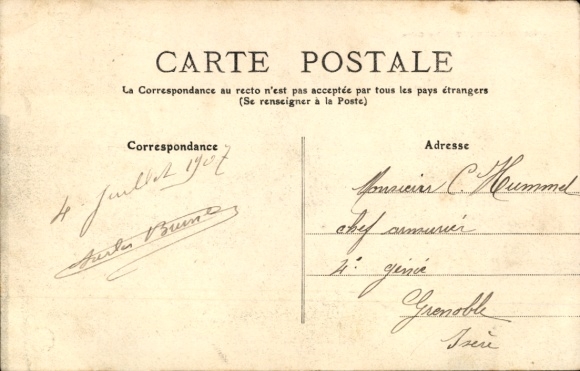 CARTE POSTALE
La Correspondance au recto n'est pas acceptée par tous les pays étrangers
(Se renseigner à la Poste)
Correspondance
4 Juillet 1907
Adresse
Monsieur C. Hummel
chef armurier
4e génie
Grenoble
Isère